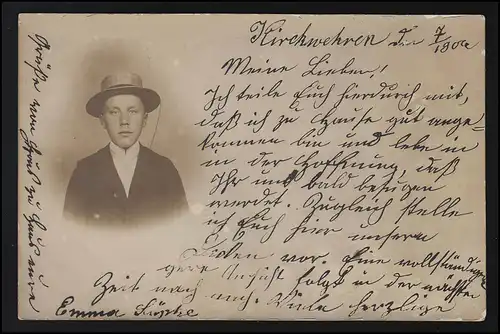 Kirchwehren d. 7/
Meine Lieben!
Ich teile Euch hierdurch mit,
daß ich zu Hause gut ange-
kommen bin und lebe nun
in der Hoffnung, daß
Ihr uns bald besuchen
werdet. Zugleich stelle
ich Euch hier unsern
vor. Eine vollständi-
gere Ansicht folgt in der nächsten
Zeit nach auch. Viele herzliche
Grüße von Haus zu Haus eure
Emma